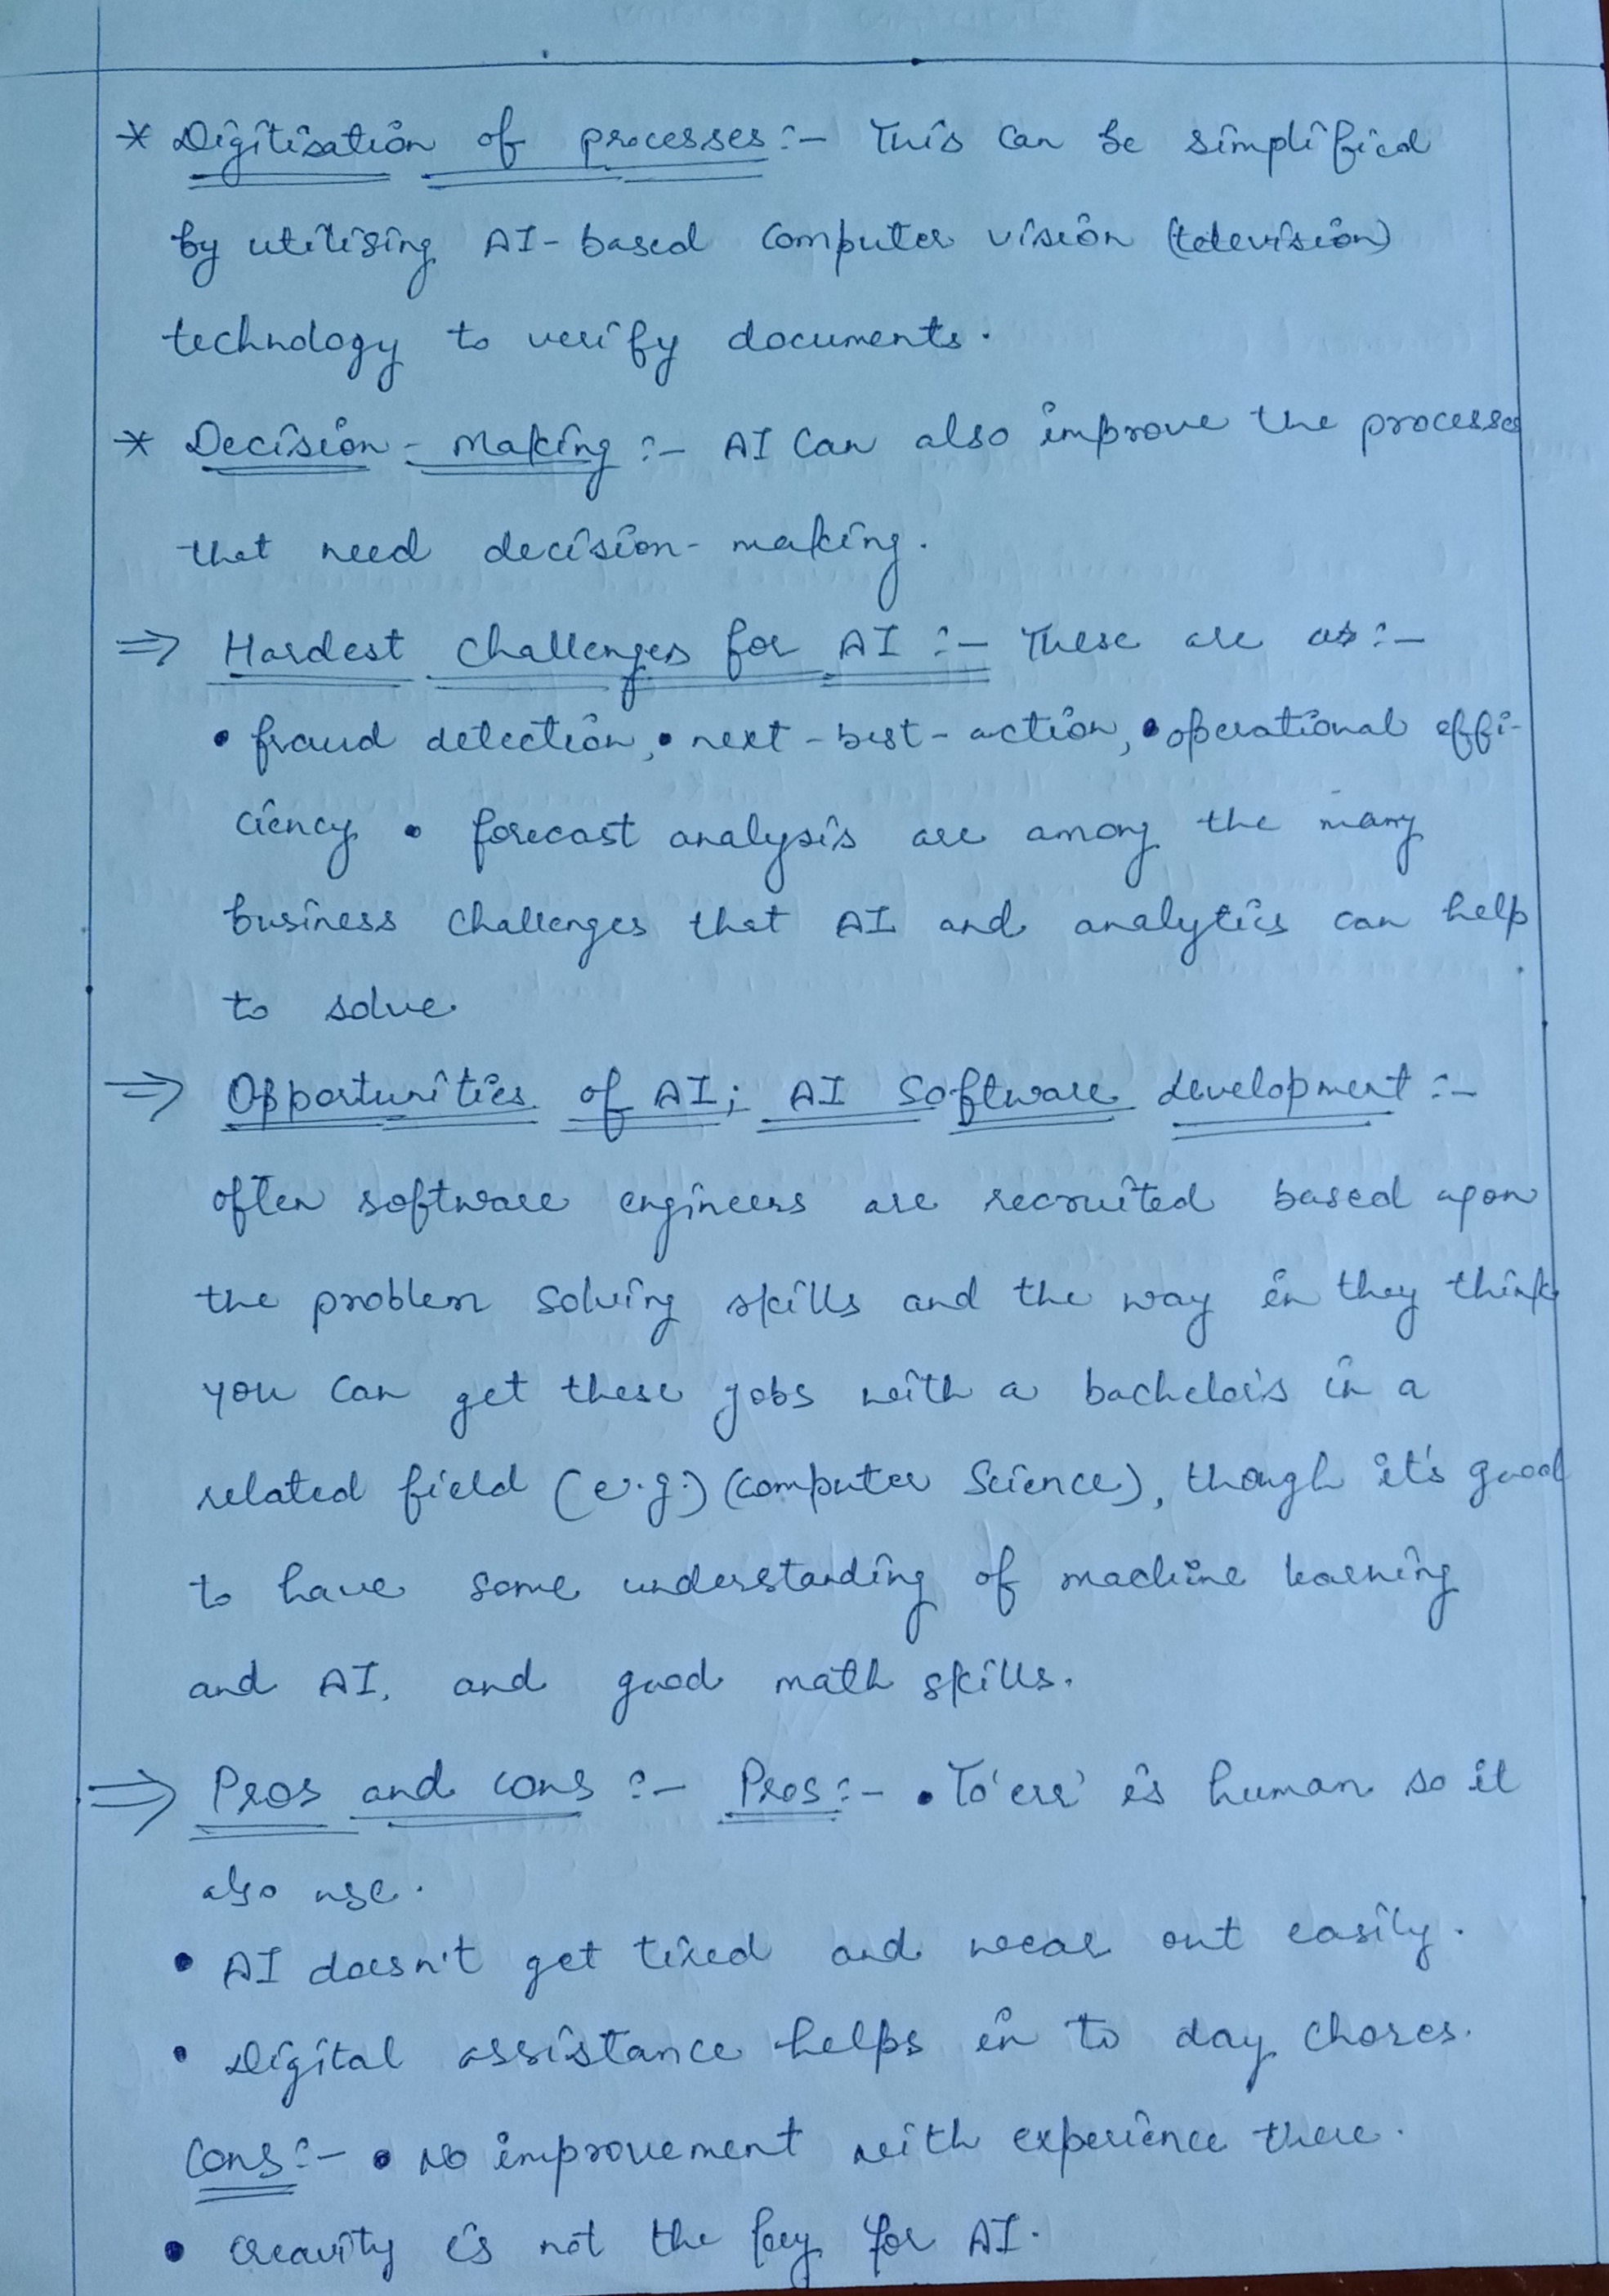 * Digitisation of processes :- This can be simplified
by utilising AI-based computer vision (television)
technology to verify documents.
* Decision - Making :- AI can also improve the processes
that need decision-making.
⇒ Hardest challenges for AI :- These are as :-
• fraud detection, • next-best-action, • operational effi-
ciency • forecast analysis are among the many
business challenges that AI and analytics can help
to solve.
⇒ Opportunities of AI; AI Software development :-
often software engineers are recruited based upon
the problem solving skills and the way in they think
you can get these jobs with a bachelor's in a
related field (e.g.) (computer Science), though it's good
to have some understanding of machine learning
and AI, and good math skills.
⇒ Pros and cons :- Pros :- • To 'err' is human so it
also use.
• AI doesn't get tired and wear out easily.
• Digital assistance helps in to day chores.
Cons :- • No improvement with experience there.
• creavity is not the key for AI.